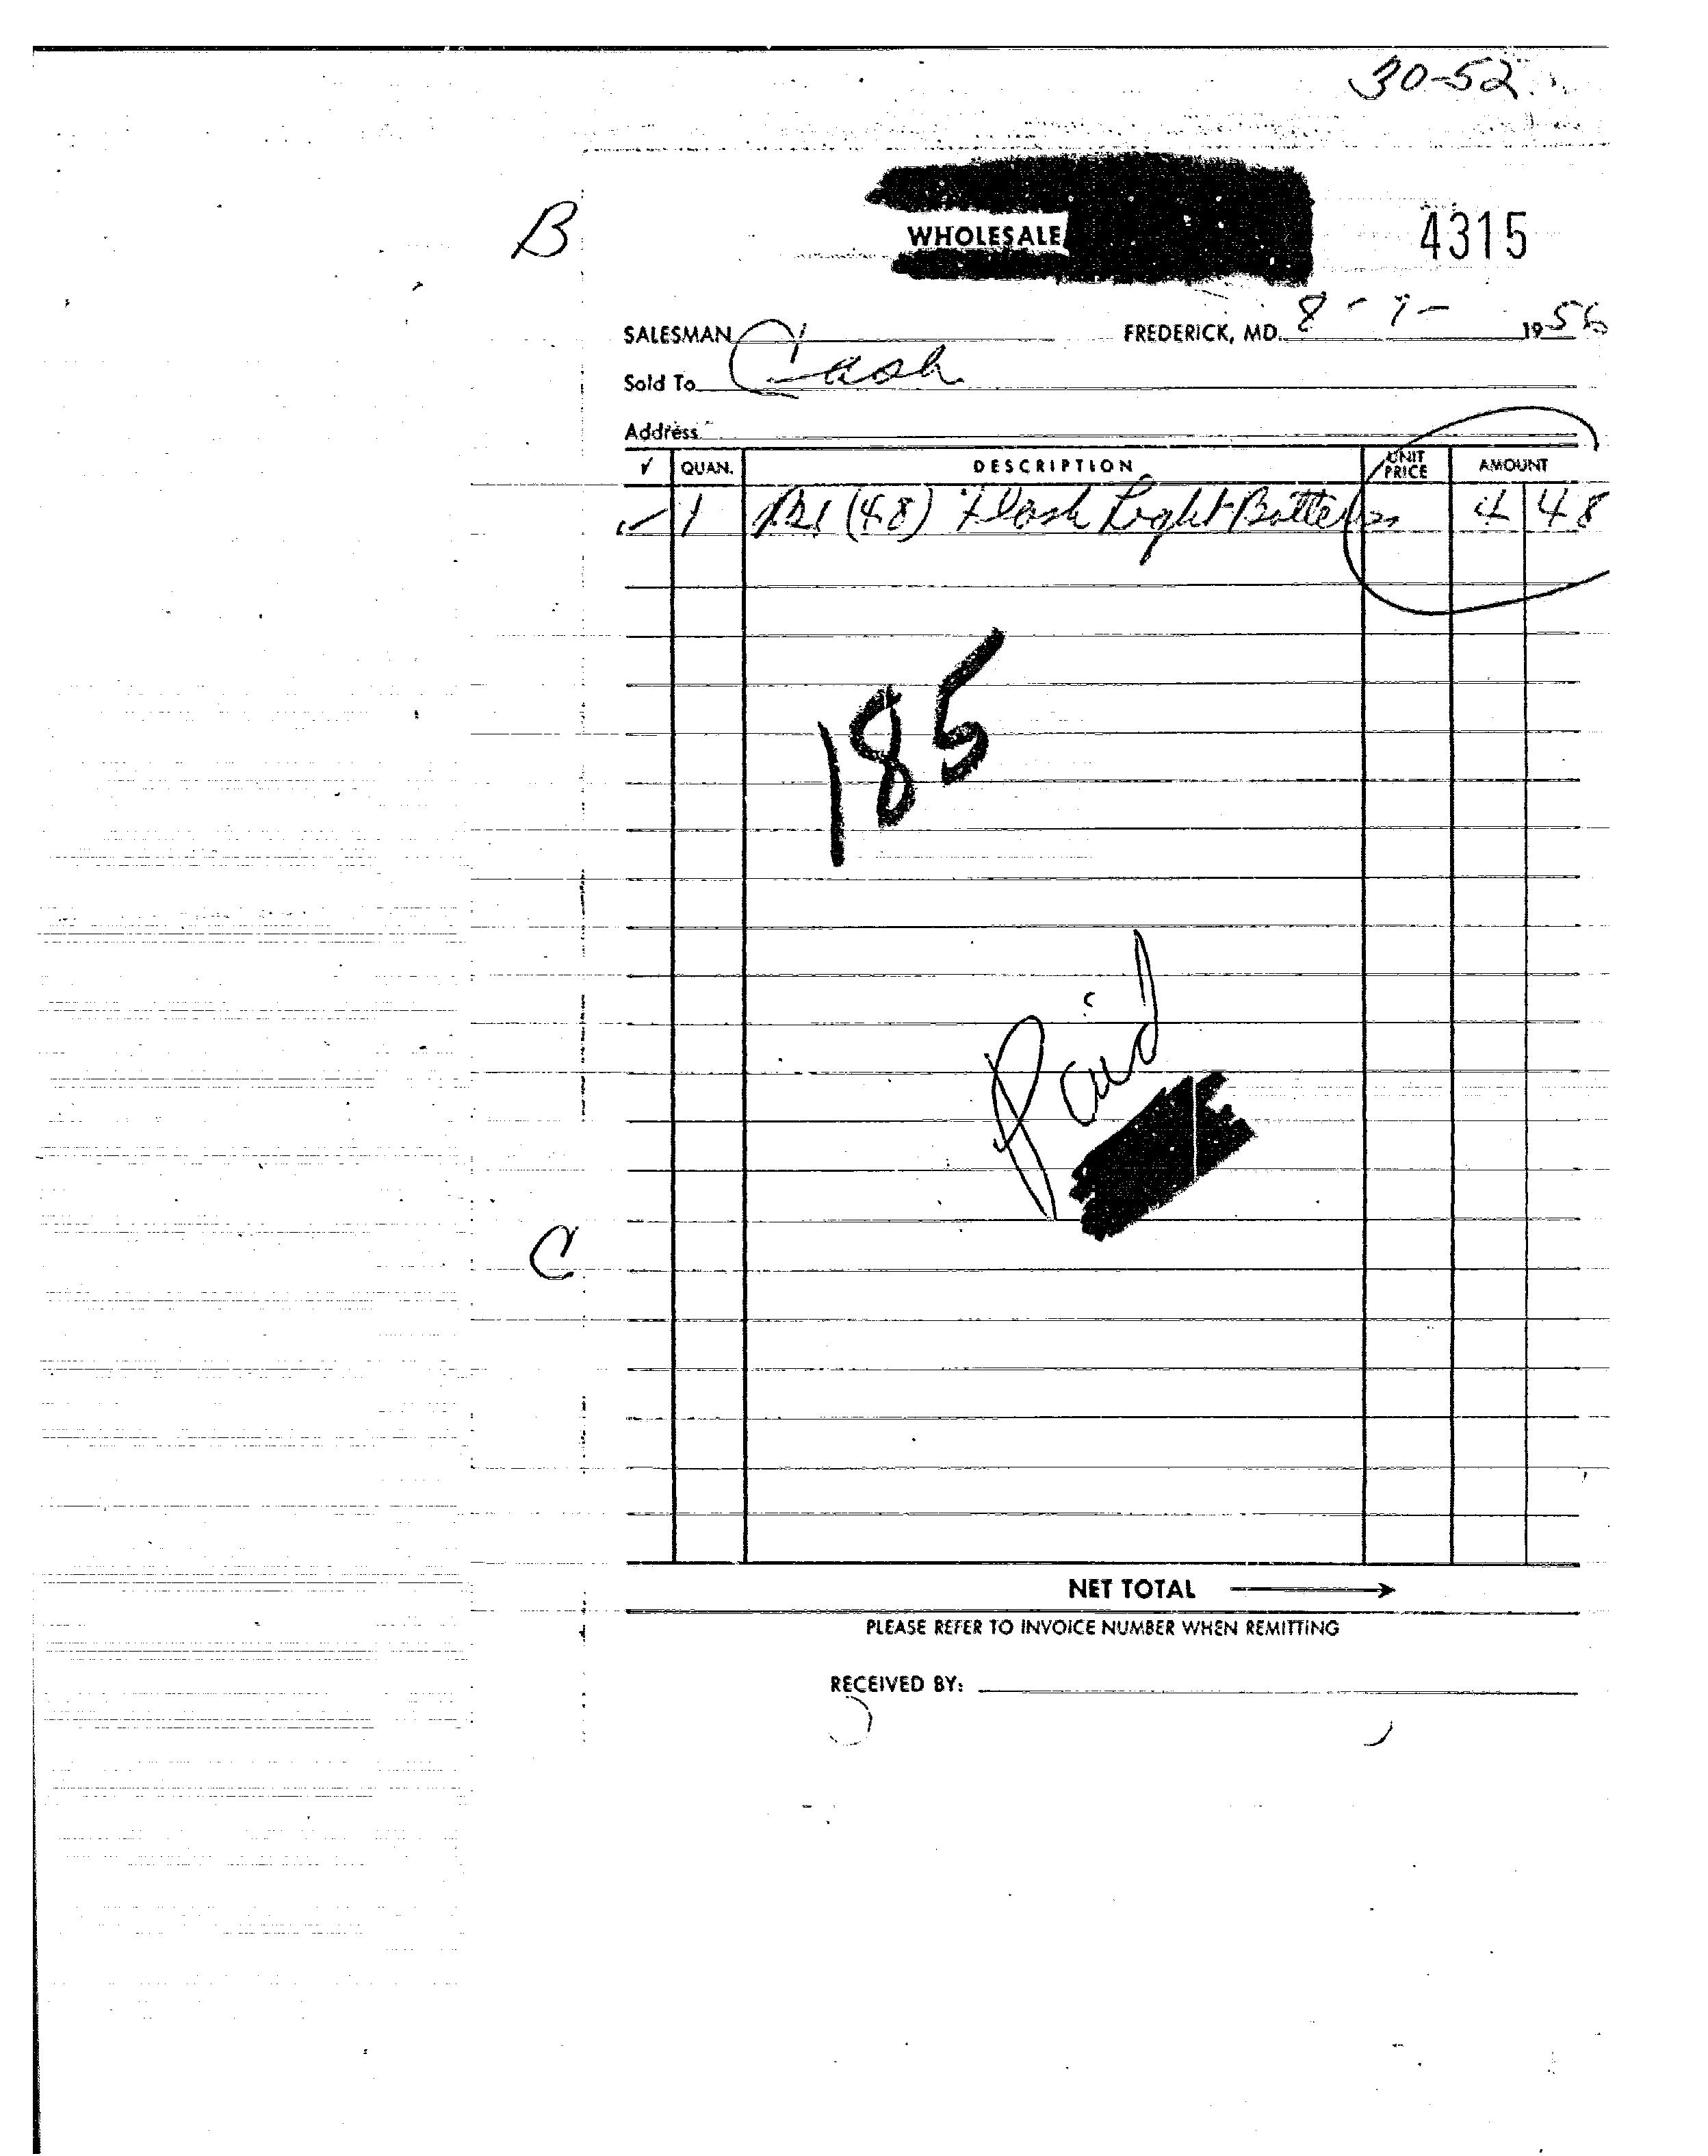 30-52
B
WHOLESALE
4315
SALESMAN FREDERICK, MD. 8 - 7 - 1956
Sold To Cash
Address
✓ QUAN. DESCRIPTION UNIT PRICE AMOUNT
✓ 1 (48) Flash Light Batteries 4 48
185
Paid
C
NET TOTAL →
PLEASE REFER TO INVOICE NUMBER WHEN REMITTING
RECEIVED BY: